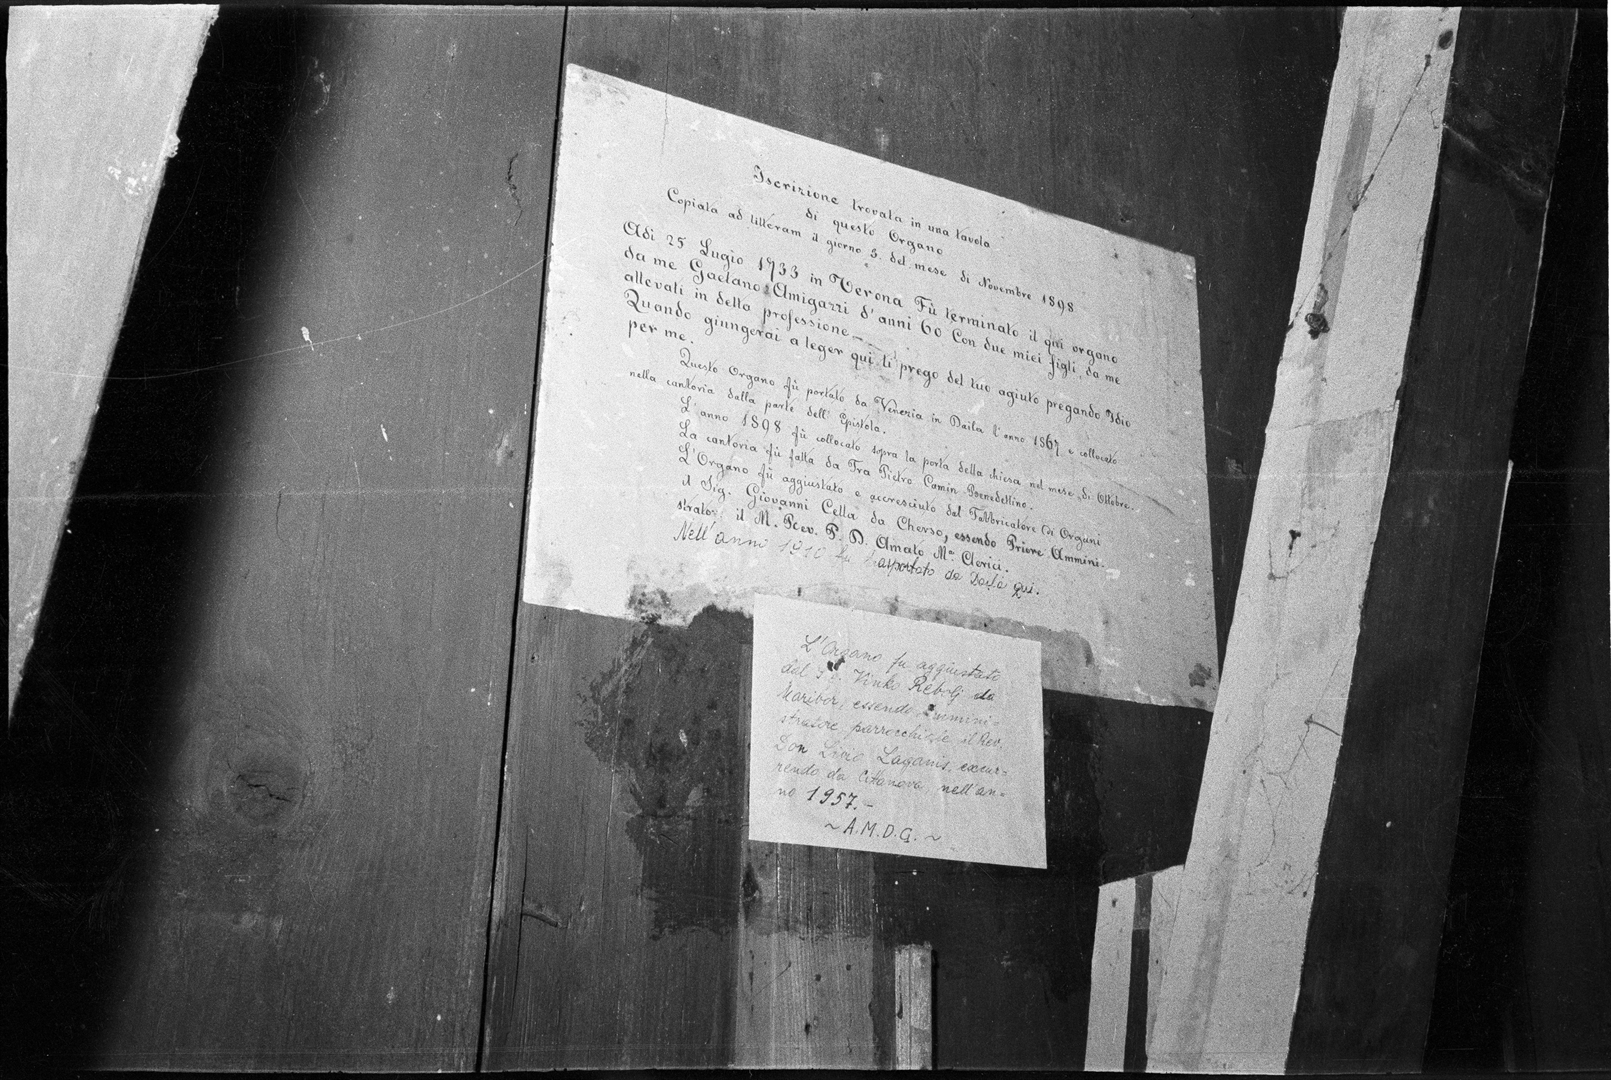 Iscrizione trovata in una tavola
di questo Organo
Copiata ad litteram il giorno 3. del mese di Novembre 1898
Adi 25 Lugio 1733 in Verona Fù terminato il qui organo
da me Gaetano Amigazzi d'anni 60 Con due miei figli, da me
allevati in detta professione
Quando giungerai a leger qui ti prego del tuo agiuto pregando Idio
per me.
Questo Organo fù portato da Venezia in Daila l'anno 1867 e collocato
nella cantoria dalla parte dell'Epistola.
L'anno 1898 fù collocato sopra la porta della chiesa nel mese di Ottobre.
La cantoria fù fatta da Fra Pietro Camin Benedettino.
L'Organo fù aggiustato e accresciuto dal Fabbricatore di Organi
il Sig. Giovanni Cella da Cherso, essendo Priore Ammini-
strator il M. Rev. P. D. Amato Mª Clerici.
Nell'anno 1910 fu trasportato da Daila qui.
L'Organo fu aggiustato
dal Vinko Rebolj da
Maribor, essendo Ammini=
stratore parrocchiale il Rev.
Don Livio Laganis, excur=
rendo da Cittanova, nell'an=
no 1957.-
~ A.M.D.G. ~